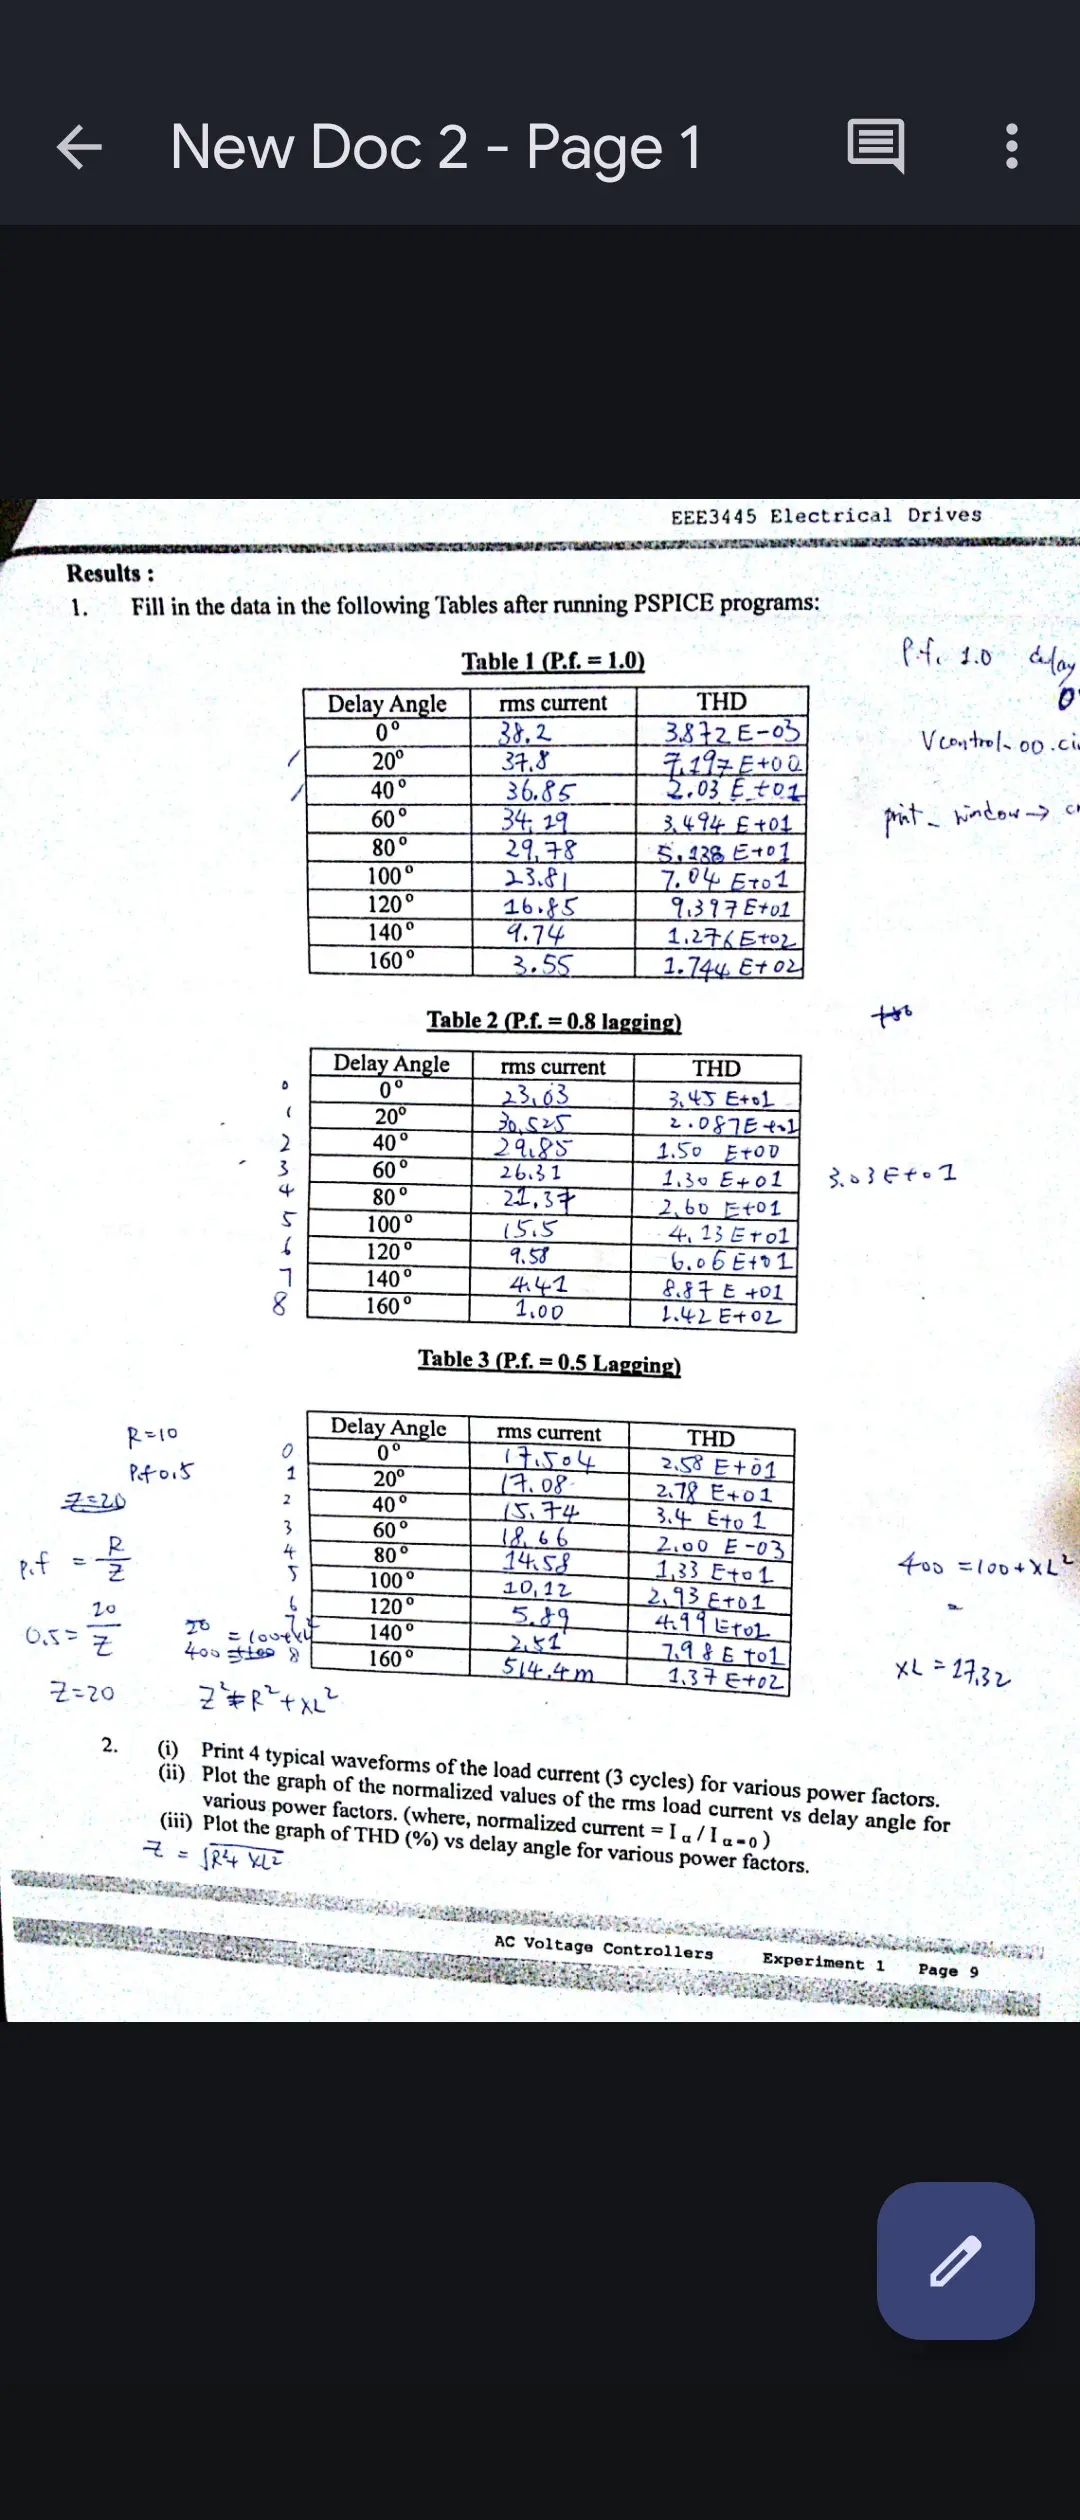 New Doc 2 - Page 1
EEE3445 Electrical Drives
Results :
1. Fill in the data in the following Tables after running PSPICE programs:
Table 1 (P.f. = 1.0)
P.f. 1.0 delay
Delay Angle rms current THD
0° 38.2 3.872 E-03
Vcontrol-00.ci
20° 37.8 7.197 E+00
40° 36.85 2.03 E+01
60° 34.19 3.494 E+01
print - window →
80° 29.78 5.138 E+01
100° 23.81 7.04 E+01
120° 16.85 9.397 E+01
140° 9.74 1.276 E+02
160° 3.55 1.744 E+02
Table 2 (P.f. = 0.8 lagging)
Delay Angle rms current THD
0 0° 23.03 3.45 E+01
1 20° 30.525 2.087E+01
2 40° 29.85 1.50 E+00
3 60° 26.31 1.30 E+01 3.03E+01
4 80° 21.37 2.60 E+01
5 100° 15.5 4.13 E+01
6 120° 9.58 6.06 E+01
7 140° 4.41 8.87 E+01
8 160° 1.00 1.42 E+02
Table 3 (P.f. = 0.5 Lagging)
Delay Angle rms current THD
R=10
0 0° 17.504 2.58 E+01
P.f 0.5
1 20° 17.08 2.78 E+01
Z=20
2 40° 15.74 3.4 E+01
3 60° 18.66 2.00 E-03
4 80° 14.58 1.33 E+01
p.f = R/Z
400 = 100 + XL²
5 100° 10.12 2.93 E+01
6 120° 5.89 4.99 E+01
0.5 = 20/Z
20 = 100+XL²
7 140° 2.51 7.98 E+01
400
8 160° 514.4m 1.37 E+02
XL = 17.32
Z=20
Z² = R² + XL²
2. (i) Print 4 typical waveforms of the load current (3 cycles) for various power factors.
(ii) Plot the graph of the normalized values of the rms load current vs delay angle for
various power factors. (where, normalized current = I α / I α=0 )
(iii) Plot the graph of THD (%) vs delay angle for various power factors.
Z = √R²+ XL²
AC Voltage Controllers Experiment 1 Page 9